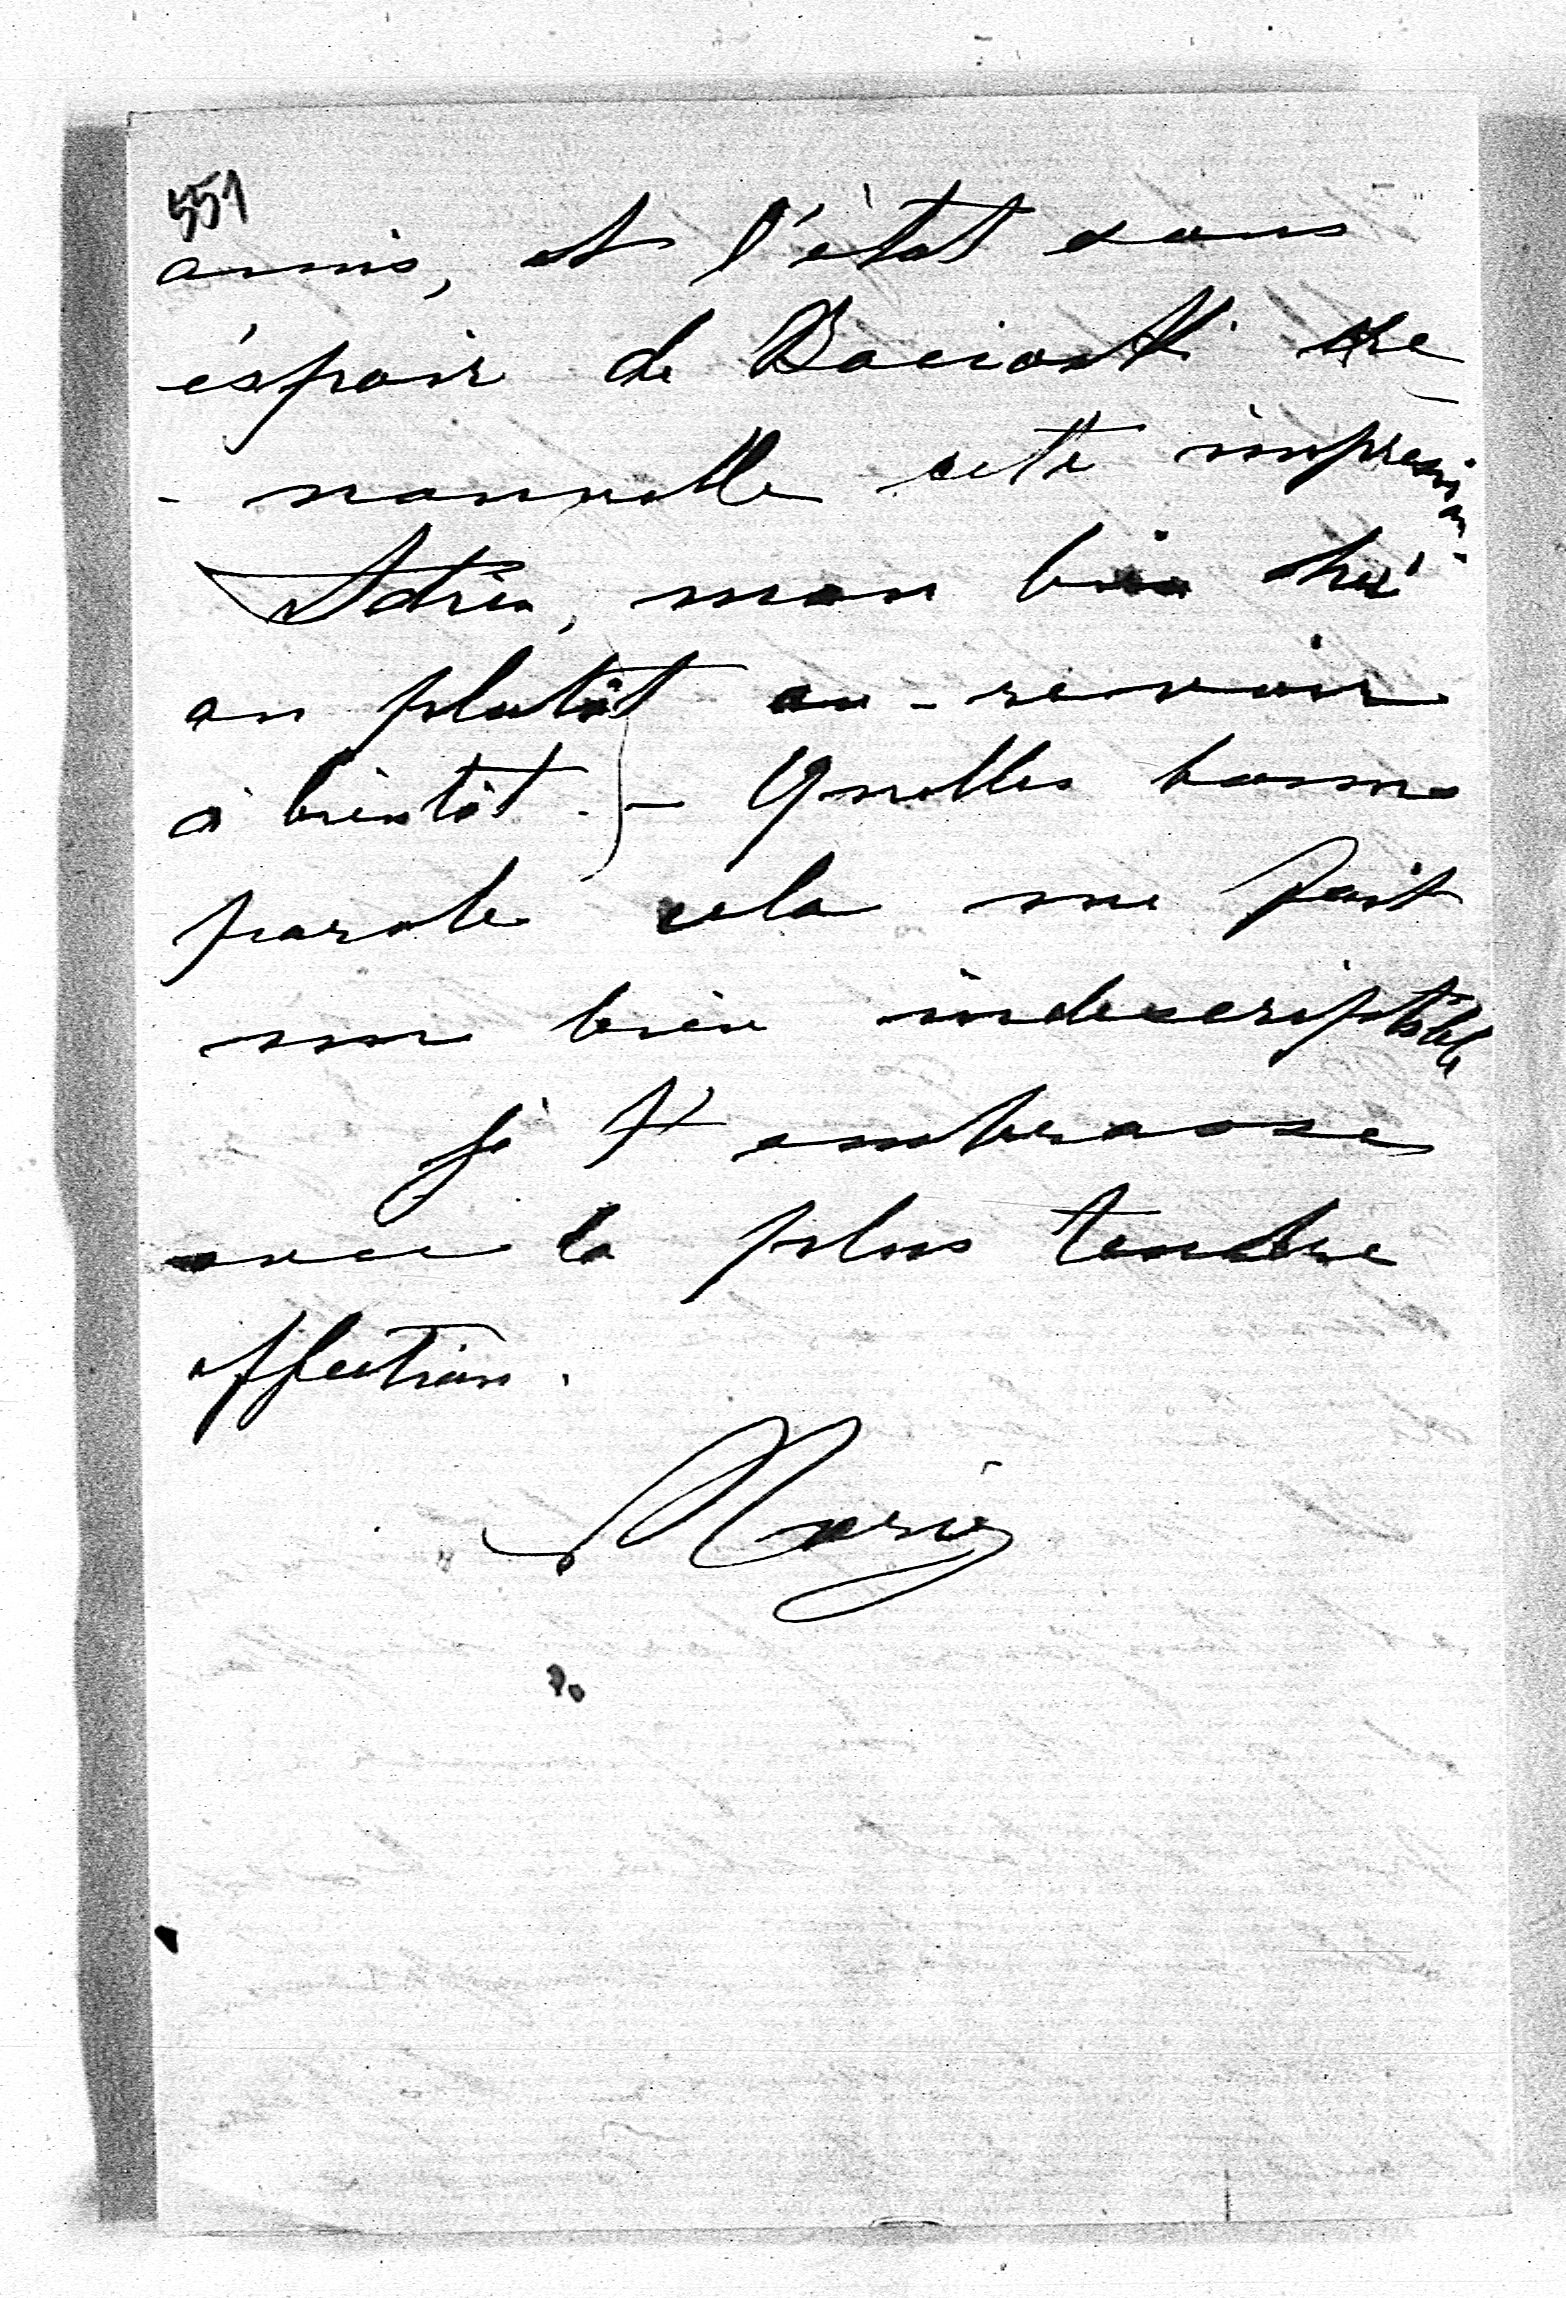 551
amis, et l'état sans
éspoir de Baciocchi re-
-nouvelle cette impression.
Adieu, mon bien cher
ou plutôt au-revoir
à bientôt. - Quelles bonne
parole cela me fait
un bien indescriptible
je t'embrasse
avec la plus tendre
affection.
Marie